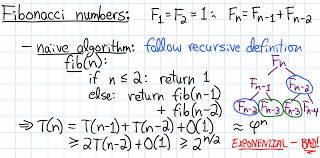 Fibonacci numbers: F₁=F₂=1; Fₙ=Fₙ₋₁+Fₙ₋₂
- naive algorithm: follow recursive definition
fib(n):
if n ≤ 2: return 1
else: return fib(n-1)
+ fib(n-2)
Fₙ
Fₙ₋₁ Fₙ₋₂
Fₙ₋₂ Fₙ₋₃ Fₙ₋₃ Fₙ₋₄
⇒ T(n) = T(n-1)+T(n-2)+O(1) ≈ φⁿ
≥ 2T(n-2)+O(1) ≥ 2^{n/2}
EXPONENTIAL - BAD!